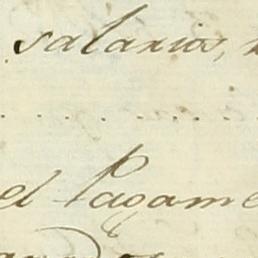 salarios,
el Pagame